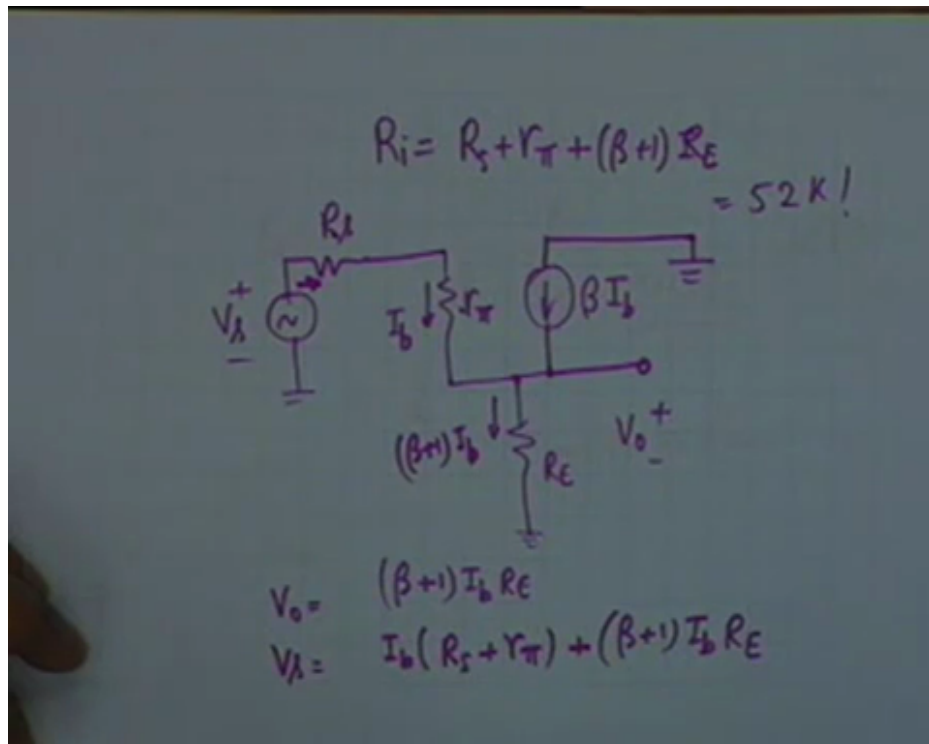 Ri = Rs + rπ + (β+1) RE
= 52K!
Rs
+
Vs
~
−
Ib
rπ
βIb
(β+1)Ib
RE
Vo
+
−
Vo = (β+1) Ib RE
Vs = Ib (Rs + rπ) + (β+1) Ib RE